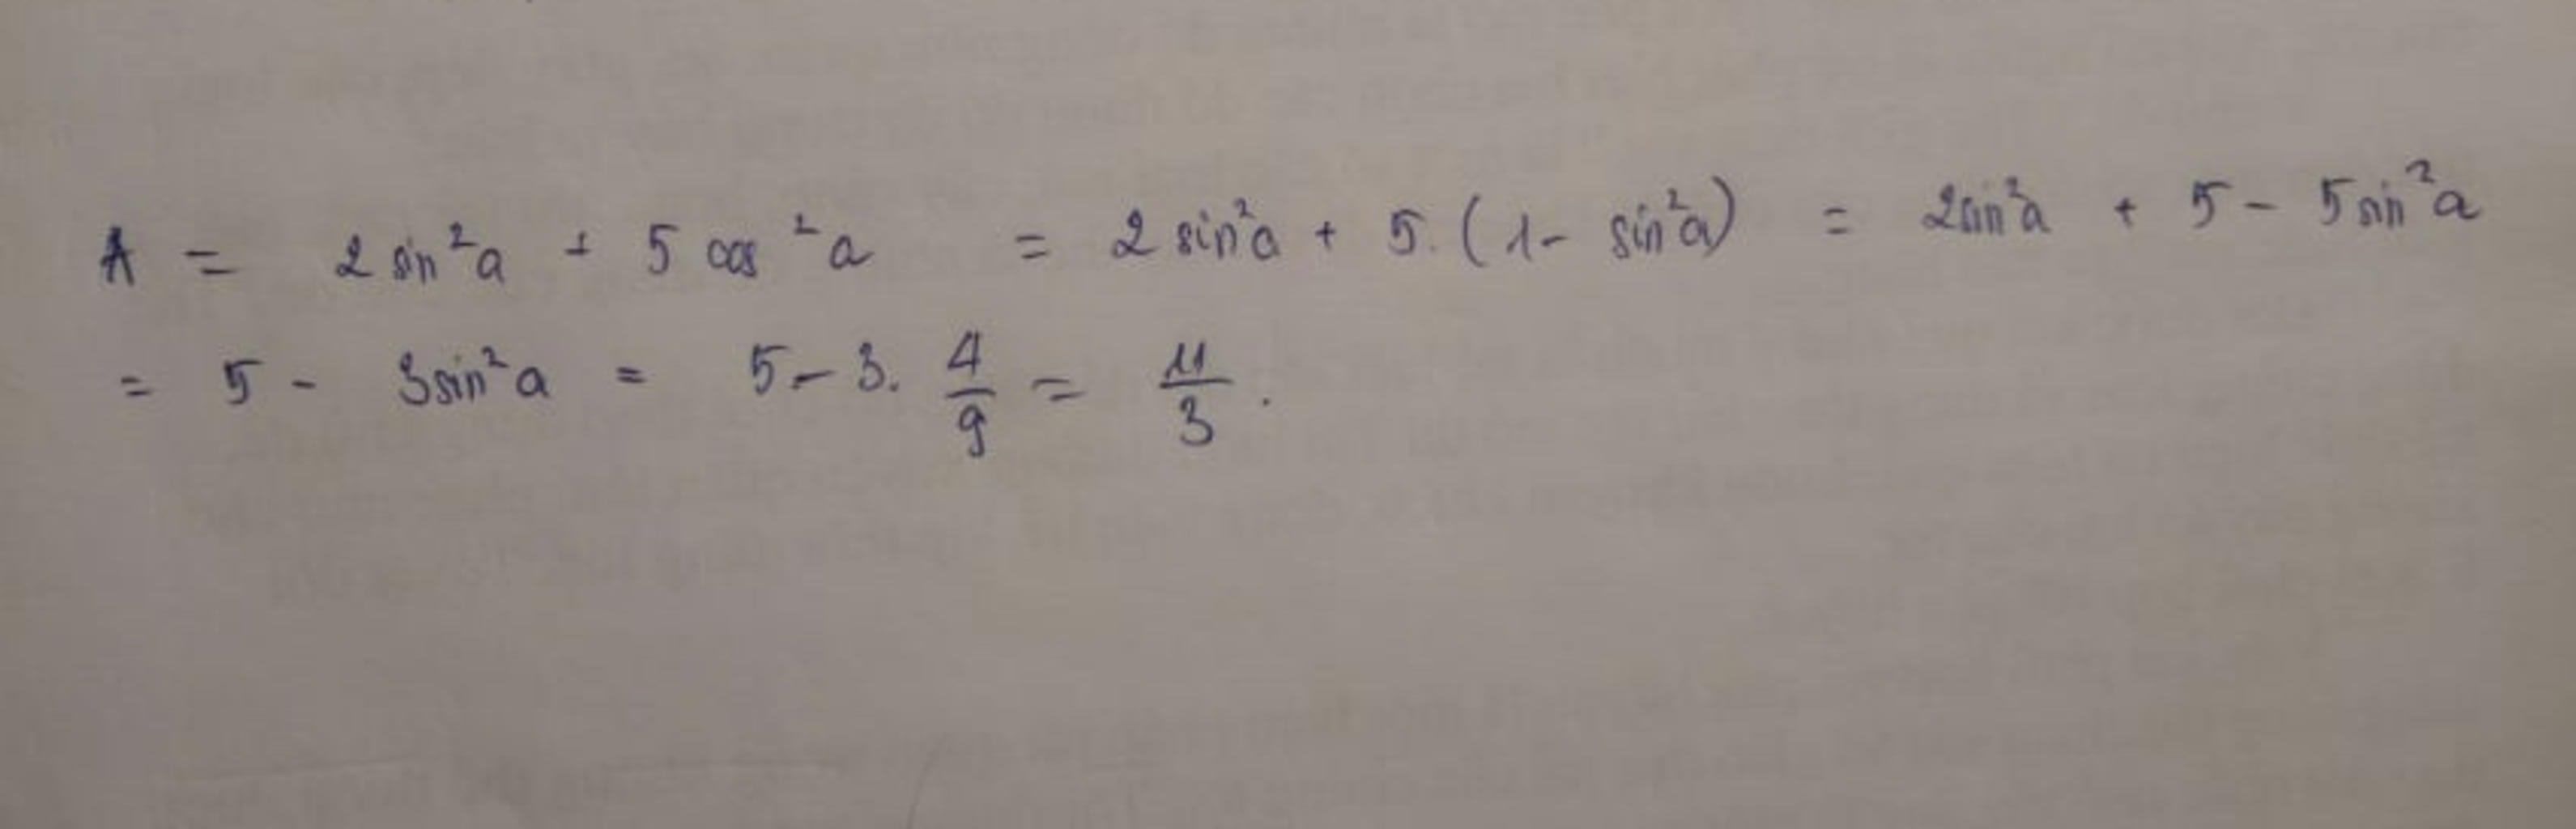 A = 2 sin²a + 5 cos²a = 2 sin²a + 5. (1 - sin²a) = 2sin²a + 5 - 5 sin²a
= 5 - 3sin²a = 5 - 3. 4/9 = 11/3 .